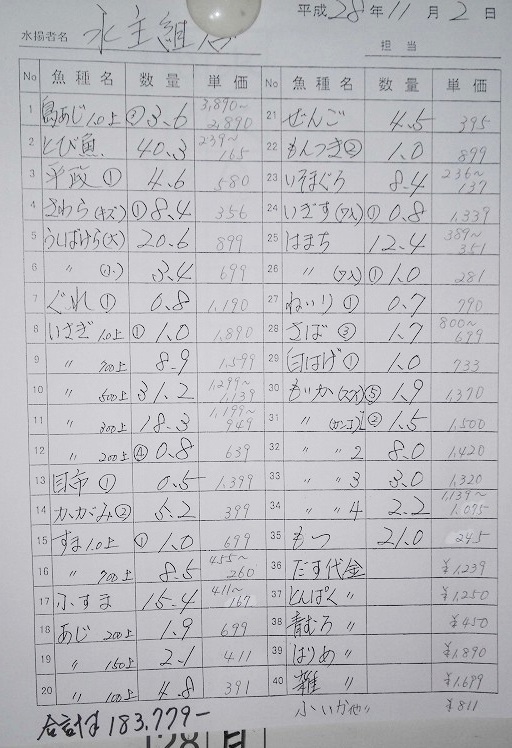 平成 28 年 11 月 2 日
水揚者名 永主組合
担当
No 魚種名 数量 単価
1 島あじ 1.0上 ② 3.6 3,890~2,890
2 とび魚 40.3 239~165
3 平政 ① 4.6 580
4 さわら(キズ) ① 8.4 356
5 うしばけら(大) 20.6 899
6 〃 (小) 3.4 699
7 ぐれ ① 0.8 1,190
8 いさぎ 1.0上 ① 1.0 1,890
9 〃 700上 8.9 1,599
10 〃 500上 31.2 1,299~1,139
11 〃 300上 18.3 1,199~949
12 〃 200上 ④ 0.8 639
13 目市 ① 0.5 1,399
14 かがみ ② 5.2 399
15 すま 1.0上 ① 1.0 699
16 〃 700上 8.5 455~260
17 ふすま 15.4 411~167
18 あじ 200上 1.9 699
19 〃 150上 2.1 411
20 〃 100上 4.8 391
No 魚種名 数量 単価
21 ぜんご 4.5 395
22 もんつき ② 1.0 899
23 いそまぐろ 8.4 236~137
24 いぎす(入) ① 0.8 1,339
25 はまち 12.4 389~351
26 〃 (入) ① 1.0 281
27 ねいり ① 0.7 790
28 さば ③ 1.7 800~699
29 白はげ ① 1.0 933
30 もいか ⑤ 1.9 1,370
31 〃 ② 1.5 1,500
32 〃 〃 2 8.0 1,420
33 〃 〃 3 3.0 1,320
34 〃 〃 4 2.2 1,139~1,095
35 もつ 21.0 245
36 だす代金 ¥1,239
37 とんぱく 〃 ¥1,250
38 青むろ 〃 ¥450
39 はりめ 〃 ¥1,890
40 雑 〃 ¥1,699
小いか他〃 ¥811
合計は 183,779-